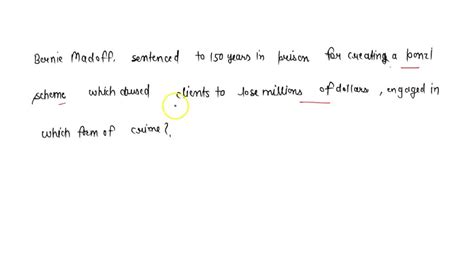 Bernie Madoff, sentenced to 150 years in prison for creating a ponzi
scheme which caused clients to lose millions of dollars, engaged in
which form of crime?